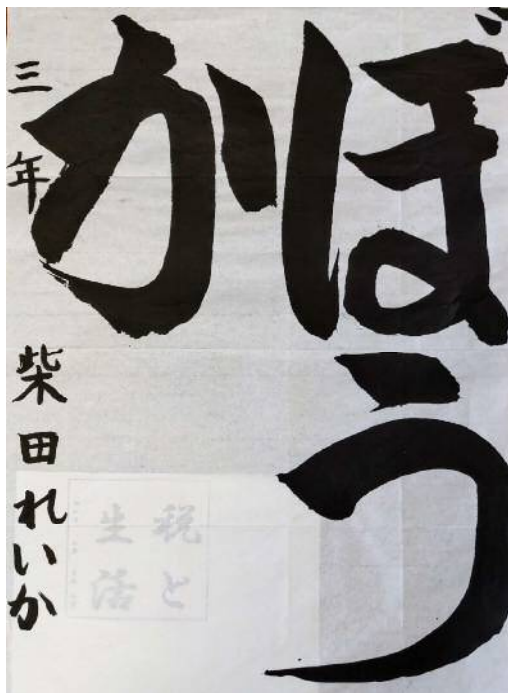 ぼう
か
三年 柴田れいか
税と
生活